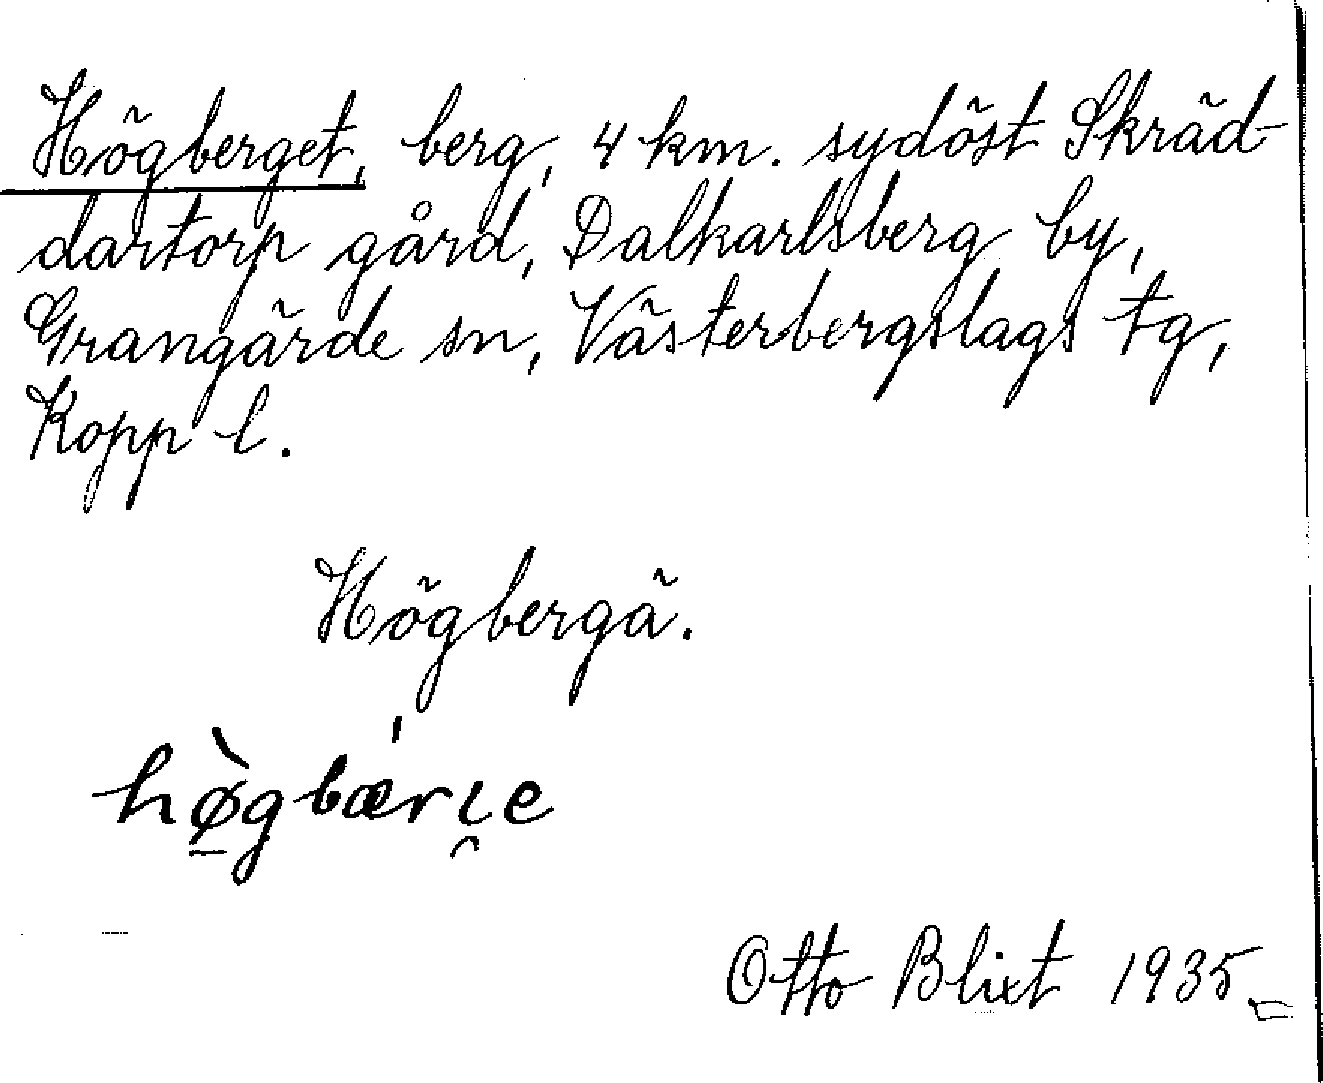 Högberget, berg, 4 km. sydöst Skräd-
dartorp gård, Dalkarlsberg by,
Grangärde sn, Västerbergslags tg,
Kopp l.
Högbergä.
hø̠̀gbær̍ι̯e
Otto Blixt 1935.